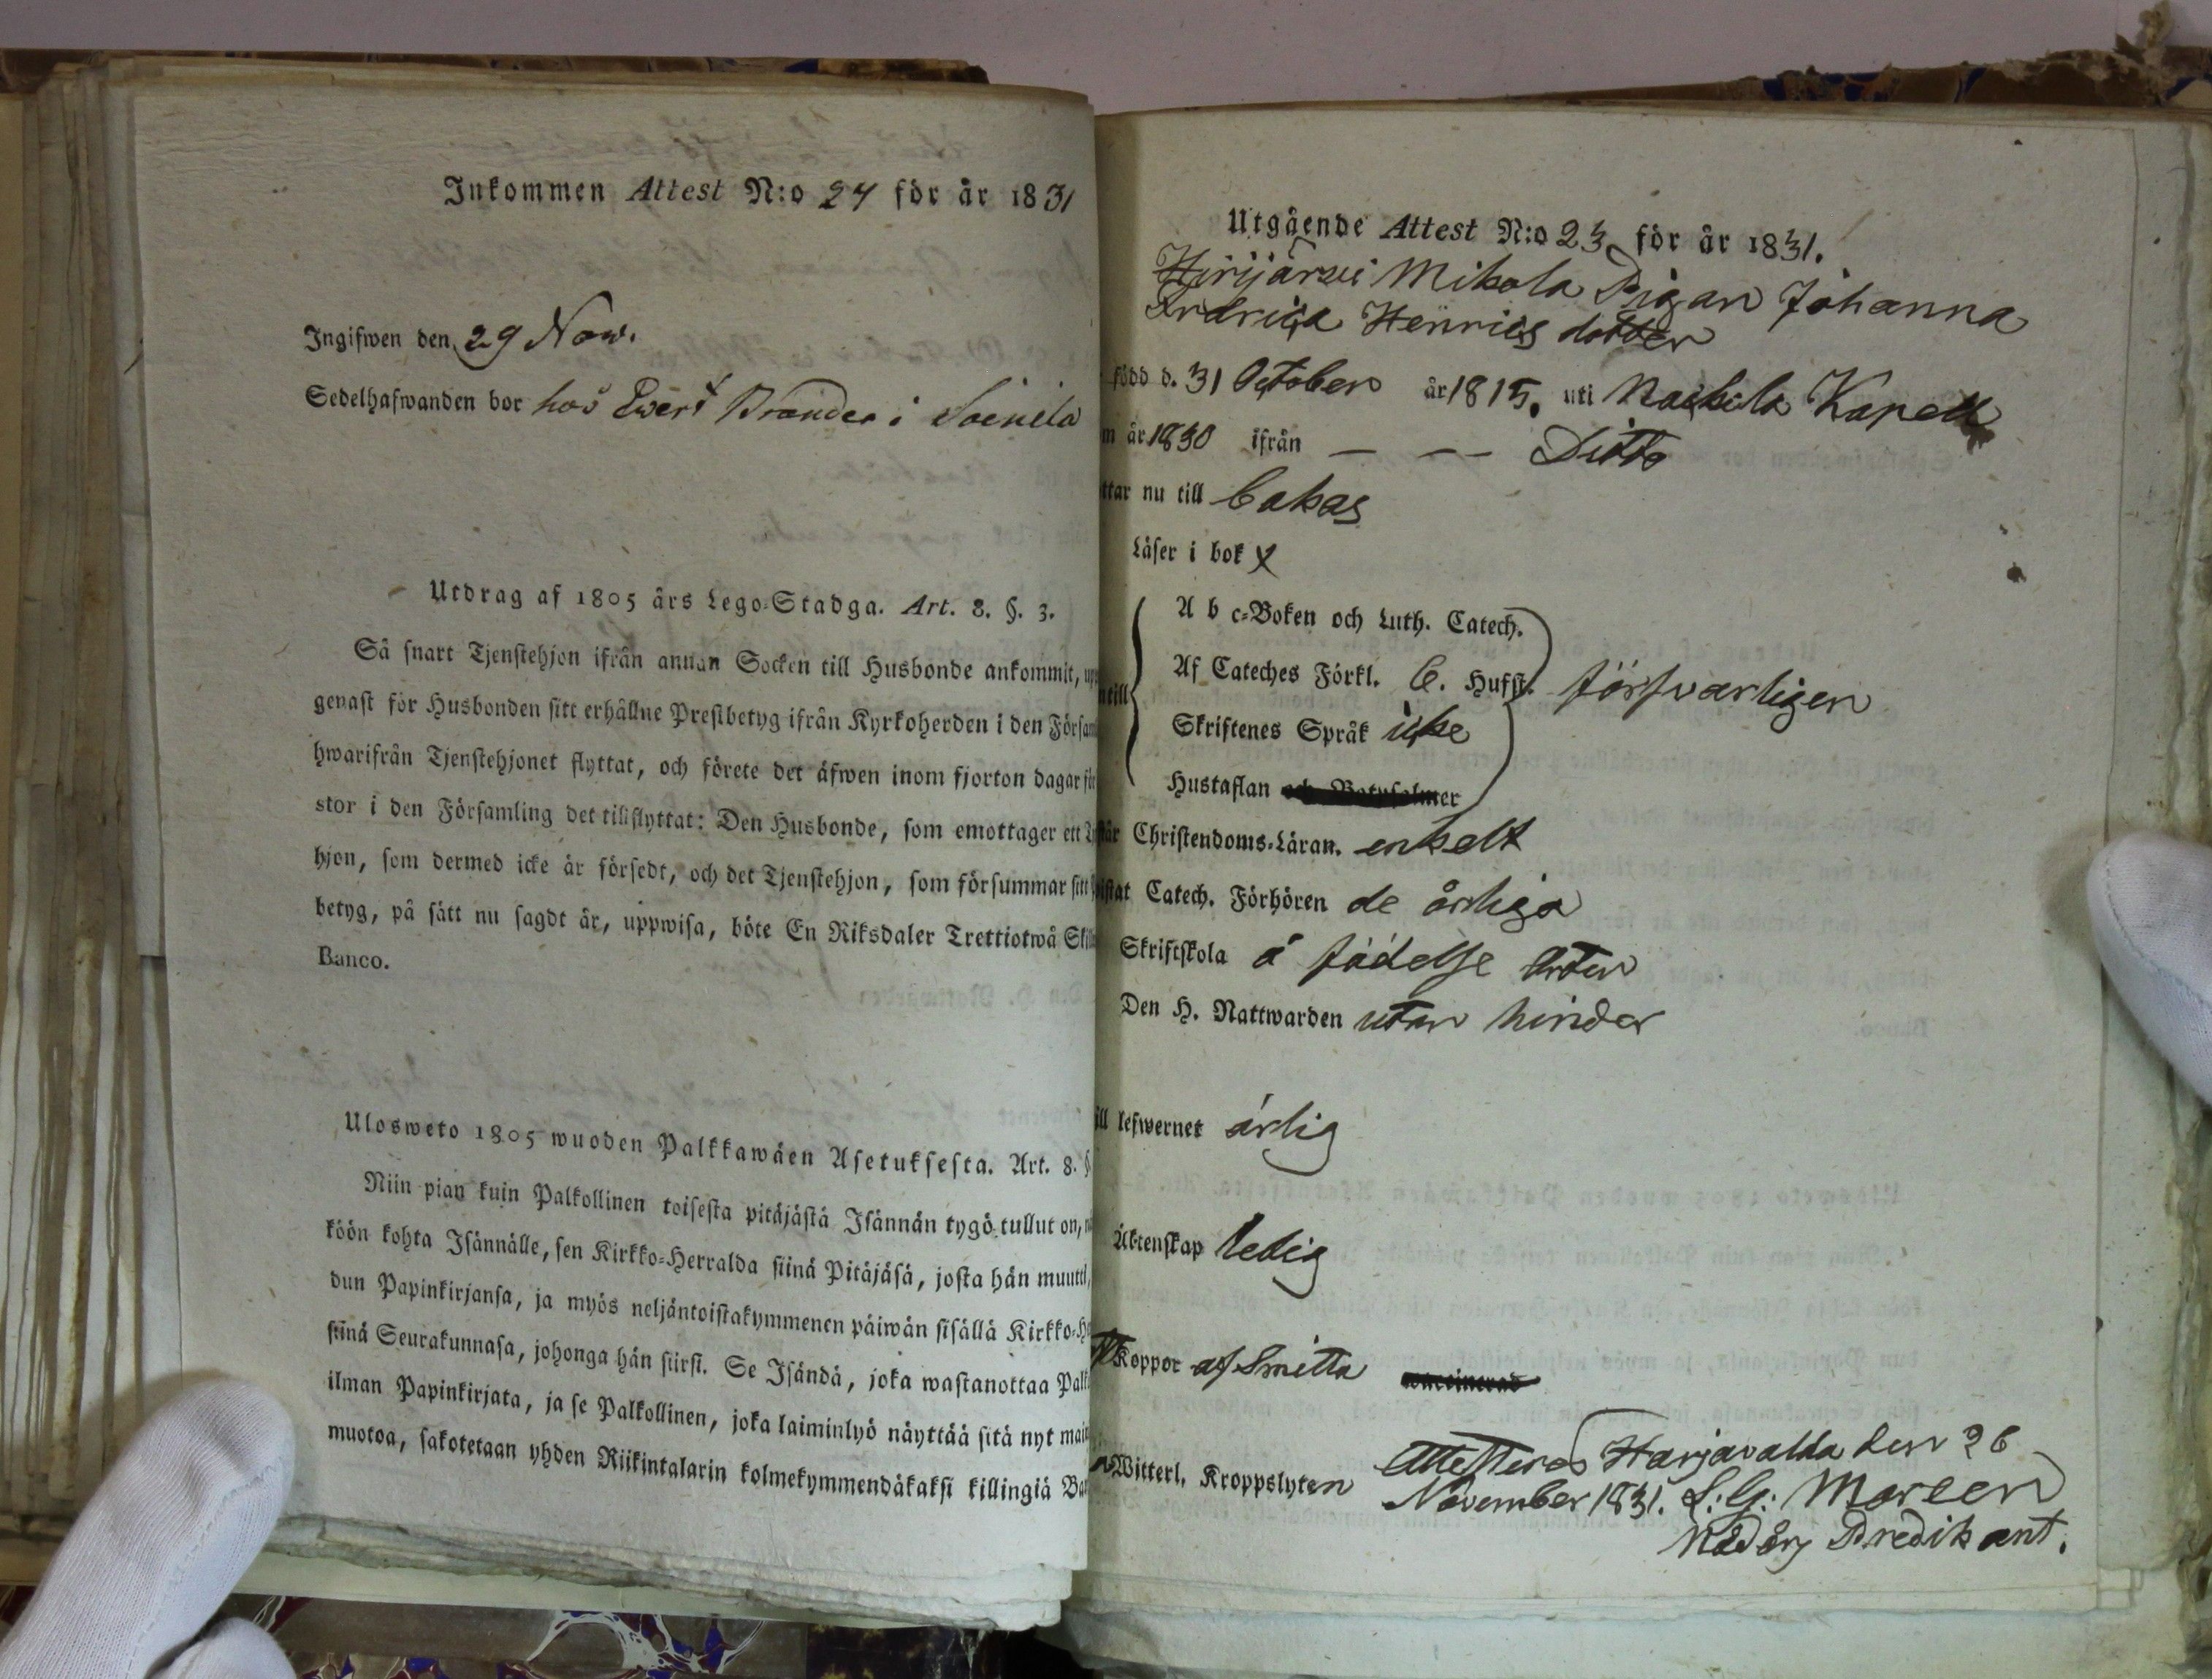 Inkommen Attest N:o 24 för år 1831
Ingifwen den 29 Nov.
Sedelhafwanden bor hos Ewert Brander i Soinila
Utdrag af 1805 års Lego-Stadga. Art. 8. §. 3.
Så snart Tjenstehjon ifrån annan Socken till Husbonde ankommit, upp
genast för Husbonden sitt erhållne Prestbetyg ifrån Kyrkoherden i den Försam
hwarifrån Tjenstehjonet flyttat, och förete det äfwen inom fjorton dagar för
stor i den Församling det tillflyttat: Den Husbonde, som emottager ett
hjon, som dermed icke är försedt, och det Tjenstehjon, som försummar sitt
betyg, på sätt nu sagdt är, uppwisa, böte En Riksdaler Trettiotwå Skil
Banco.
Ulosweto 1805 wuoden Palkkawäen Asetuksesta. Art. 8. §
Niin pian kuin Palkollinen toisesta pitäjästä Isännän tygö tullut on,
köön kohta Isännälle, sen Kirkko-Herralda siinä Pitäjäsä, josta hän muutti,
dun Papinkirjansa, ja myös neljäntoistakymmenen päiwän sisällä Kirkko-He
siinä Seurakunnasa, johonga hän siirsi. Se Isändä, joka wastanottaa Palk
ilman Papinkirjata, ja se Palkollinen, joka laiminlyö näyttää sitä nyt main
muotoa, sakotetaan yhden Riikintalarin kolmekymmendäkaksi killingiä Ban
Utgående Attest N:o 23 för år 1831.
Hirijärvi Mikola Pigan Johanna
Fredrica Henrics dotter
född d. 31 October år 1815. uti Nackila Kapell
m år 1830 ifrån — — Ditto
ttar nu till Cakas
Läser i bok x
A b c-Boken och Luth. Catech.
till Af Cateches Förkl. C. Hufst. försvarligen
Skriftenes Språk icke
Hustaflan och Botpsalmer
står Christendoms-Läran. enkelt
istat Catech. Förhören de årliga
Skriftskola å födelse orten
Den H. Nattwarden utan hinder
ill lefwernet ärlig
Äktenskap ledig
Koppor af Smitta
Witterl. Kroppslyten
Attesteras Harjavalda den 26
November 1831. L: G: Moreen
Nådårs Predikant.